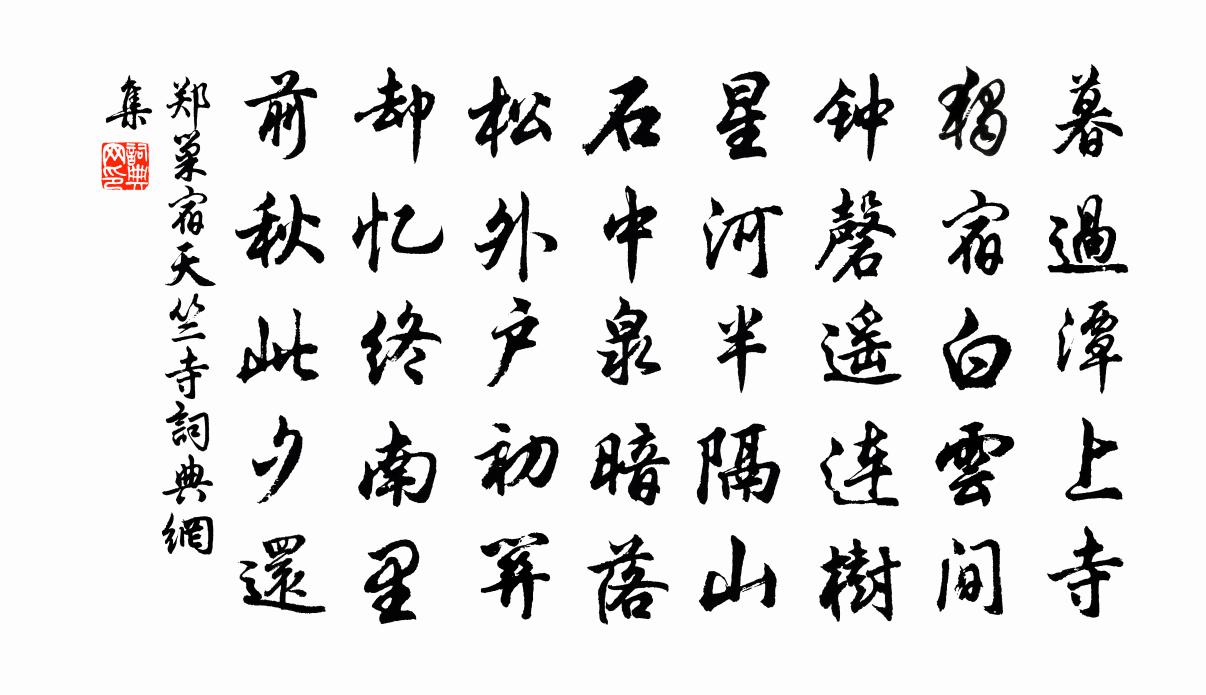 暮過潭上寺
獨宿白雲间
钟磬遥连樹
星河半隔山
石中泉暗落
松外户初開
却忆终南里
前秋此夕還
郑巢宿天竺寺詞典網
集
詞典
网印